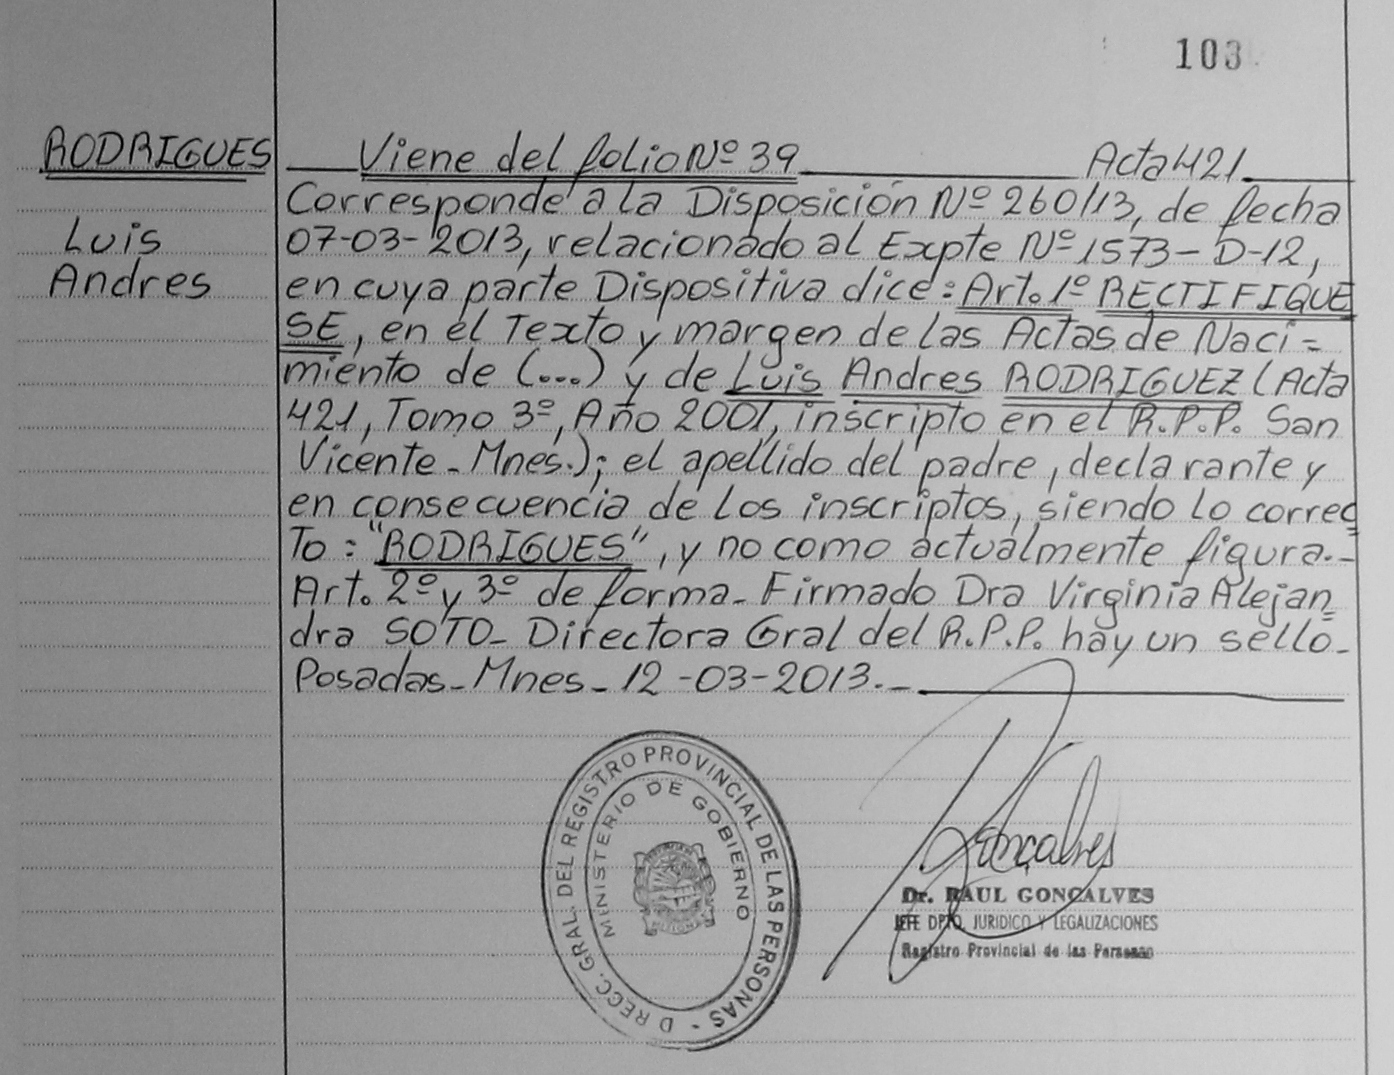 103
RODRIGUES
Luis
Andres
Viene del folio Nº 39 Acta 421.
Corresponde a la Disposición Nº 260/13, de fecha
07-03-2013, relacionado al Expte Nº 1573-D-12,
en cuya parte Dispositiva dice: Art. 1º RECTIFIQUE
SE, en el Texto y margen de las Actas de Naci=
miento de (...) y de Luis Andres RODRIGUEZ (Acta
421, Tomo 3º, Año 2001, inscripto en el R.P.P. San
Vicente - Mnes.); el apellido del padre, declarante y
en consecuencia de los inscriptos, siendo lo correc
To: "RODRIGUES", y no como actualmente figura.-
Art. 2º y 3º de forma - Firmado Dra Virginia Alejan=
dra SOTO - Directora Gral del R.P.P. hay un sello -
Posadas - Mnes - 12-03-2013.-
D RECC. GRAL. DEL REGISTRO PROVINCIAL DE LAS PERSONAS -
MINISTERIO DE GOBIERNO
Goncalves
Dr. RAUL GONCALVES
JEFE DPTO. JURIDICO Y LEGALIZACIONES
Registro Provincial de las Personas